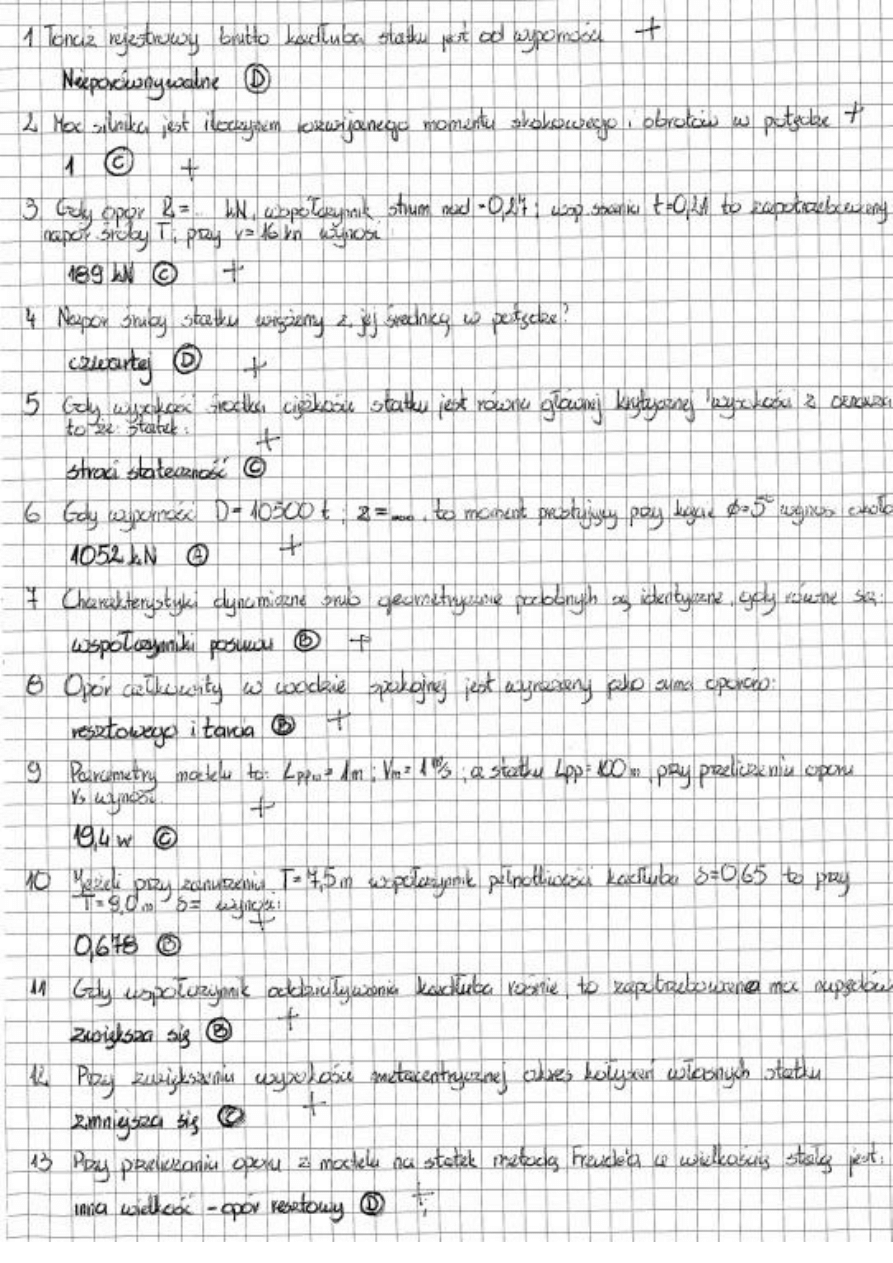 1 Tonaż rejestrowy brutto kadłuba statku jest od wyporności +
Nieporównywalne Ⓓ
2 Moc silnika jest iloczynem rozwijanego momentu skokowego i obrotów w potędze +
1 Ⓒ +
3 Gdy opór R=... kN, współczynnik strum nad =0,27; wsp. ssania t=0,21 to zapotrzebowany
napór śruby T, przy v=16 kn wynosi
189 kN Ⓒ +
4 Napór śruby statku wiążemy z jej średnicą w potędze?
czwartej Ⓓ +
5 Gdy wysokość środka ciężkości statku jest równa głównej krytycznej wysokości z
to że statek: +
straci stateczność Ⓒ
6 Gdy wyporność D=10500 t; z=...., to moment prostujący przy kącie ϕ=5° wynosi około
1052 kN Ⓐ +
7 Charakterystyki dynamiczne śrub geometrycznie podobnych są identyczne, gdy równe są:
współczynniki posuwu Ⓑ +
8 Opór całkowity w wodzie spokojnej jest wyrażany jako suma oporów:
resztowego i tarcia Ⓑ +
9 Parametry modelu to: Lppm=1m; Vm=1 m/s; a statku Lpp=100m, przy przeliczeniu oporu
Vs wynosi: +
19,4 w Ⓒ
10 Jeżeli przy zanurzeniu T=7,5m współczynnik pełnotliwości kadłuba δ=0,65 to przy
T=9,0m δ= wynosi: +
0,678 Ⓑ
11 Gdy współczynnik oddziaływania kadłuba rośnie, to zapotrzebowana moc napędów
zwiększa się Ⓑ +
12 Przy zwiększeniu wysokości metacentrycznej okres kołysań własnych statku
zmniejsza się Ⓒ +
13 Przy przeliczaniu oporu z modelu na statek metodą Freude'a w wielkością stałą jest:
inna wielkość - opór resztowy Ⓓ +